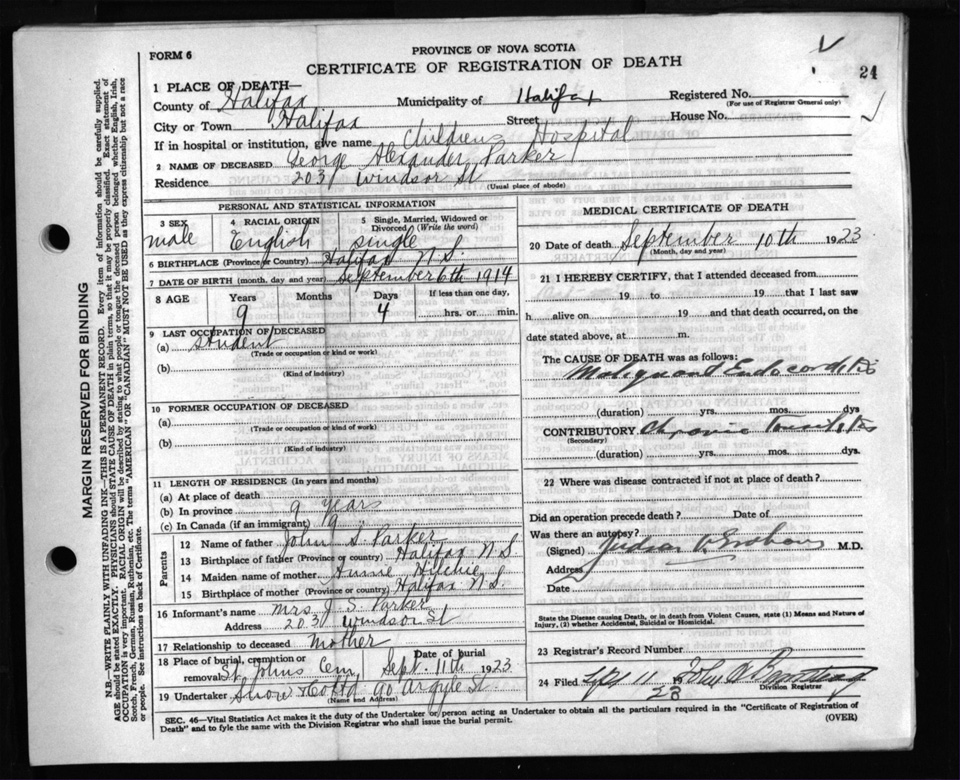 PROVINCE OF NOVA SCOTIA
FORM 6
CERTIFICATE OF REGISTRATION OF DEATH
24
1 PLACE OF DEATH—
County of Halifax Municipality of Halifax Registered No.
(For use of Registrar General only)
City or Town Halifax Street House No.
If in hospital or institution, give name Childrens Hospital
2 NAME OF DECEASED George Alexander Parker
Residence 203 Windsor St
(Usual place of abode)
PERSONAL AND STATISTICAL INFORMATION
3 SEX 4 RACIAL ORIGIN 5 Single, Married, Widowed or Divorced (Write the word)
male English single
6 BIRTHPLACE (Province or Country) Halifax N.S.
7 DATE OF BIRTH (month, day and year) September 6th 1914
8 AGE Years Months Days If less than one day,
9 4 hrs. or min.
9 LAST OCCUPATION OF DECEASED
(a) Student
(Trade or occupation or kind of work)
(b)
(Kind of industry)
10 FORMER OCCUPATION OF DECEASED
(a)
(Trade or occupation or kind of work)
(b)
(Kind of industry)
11 LENGTH OF RESIDENCE (In years and months)
(a) At place of death
(b) In province 9 years
(c) In Canada (if an immigrant) 9 "
Parents
12 Name of father John S. Parker
13 Birthplace of father (Province or country) Halifax N.S.
14 Maiden name of mother Annie
15 Birthplace of mother (Province or country) Halifax N.S.
16 Informant's name Mrs J. S. Parker
Address 203 Windsor St
17 Relationship to deceased Mother
18 Place of burial, cremation or removal St Johns Cem Date of burial Sept. 11th 1923
19 Undertaker Snow & Co Ltd 90 Argyle St.
(Name and Address)
MEDICAL CERTIFICATE OF DEATH
20 Date of death September 10th 1923
(Month, day and year)
21 I HEREBY CERTIFY, that I attended deceased from
19 to 19 that I last saw
h alive on 19 and that death occurred, on the
date stated above, at m.
The CAUSE OF DEATH was as follows:
Malignant Endocarditis
(duration) yrs. mos. dys
CONTRIBUTORY Chronic Tonsilitis
(Secondary)
(duration) yrs. mos. dys.
22 Where was disease contracted if not at place of death?
Did an operation precede death? Date of
Was there an autopsy?
(Signed) M.D.
Address
Date
State the Disease causing Death, or in death from Violent Causes, state (1) Means and Nature of Injury, (2) whether Accidental, Suicidal or Homicidal.
23 Registrar's Record Number
24 Filed Sept 11 19 23
Division Registrar
SEC. 46—Vital Statistics Act makes it the duty of the Undertaker or person acting as Undertaker to obtain all the particulars required in the "Certificate of Registration of
Death" and to fyle the same with the Division Registrar who shall issue the burial permit.
(OVER)
MARGIN RESERVED FOR BINDING
N.B.—WRITE PLAINLY WITH UNFADING INK—THIS IS A PERMANENT RECORD. Every item of information should be carefully supplied.
AGE should be stated EXACTLY. PHYSICIANS should STATE CAUSE OF DEATH in plain terms, so that it may be properly classified. Exact statement of
OCCUPATION is very important. RACIAL ORIGIN will be described by stating to what people or tongue the deceased person belonged whether English, Irish,
Scotch, French, German, Russian, Ruthenian, etc. The terms "AMERICAN" OR "CANADIAN" MUST NOT BE USED as they express citizenship but not a race
or people. See instructions on back of Certificate.